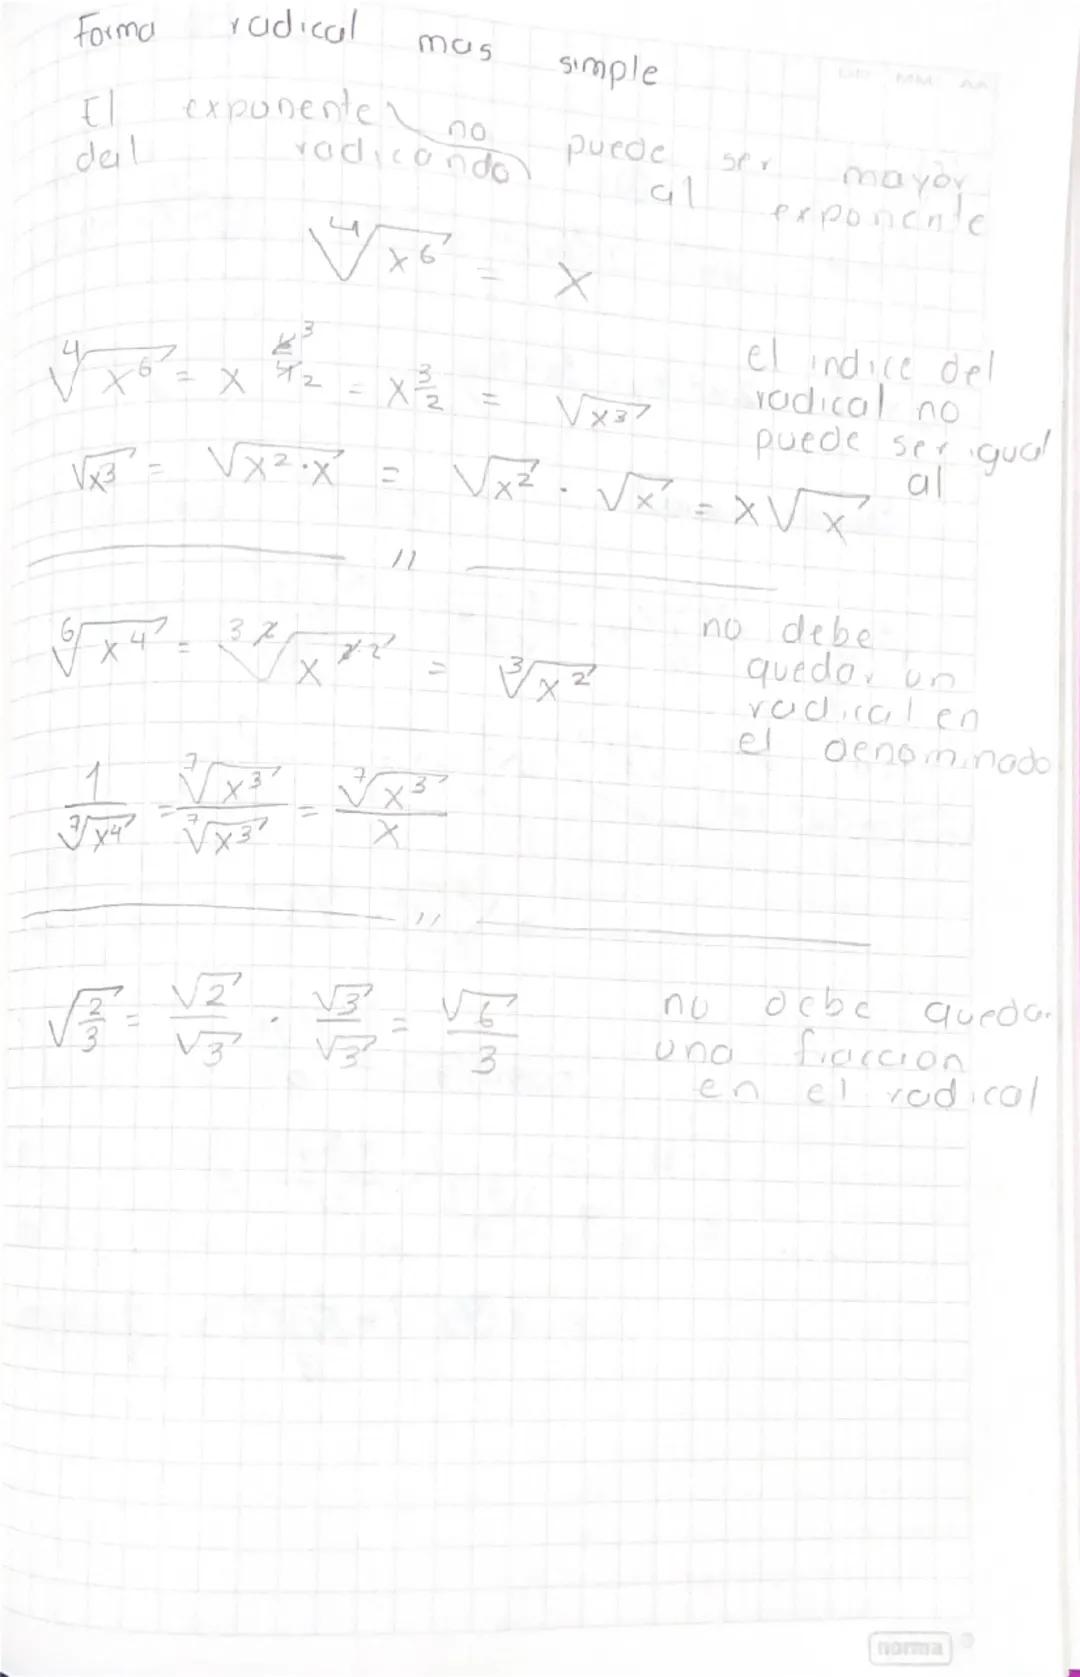 Forma radical mas simple
El exponente no puede ser mayor
del radicando al exponente
⁴√x⁶ = x
⁴√x⁶ = x^(6/4) 3/2 = x^(3/2) = √x³
el indice del
radical no
puede ser igual
al
√x³ = √x²·x = √x² · √x = x√x
//
⁶√x⁴ = ³·²√x²·² = ³√x²
no debe
quedar un
radical en
el denominado
1/⁷√x⁴ = ⁷√x³/⁷√x³ = ⁷√x³/x
//
√2/3 = √2/√3 · √3/√3 = √6/3
no debe quedar
una fraccion
en el radical
norma